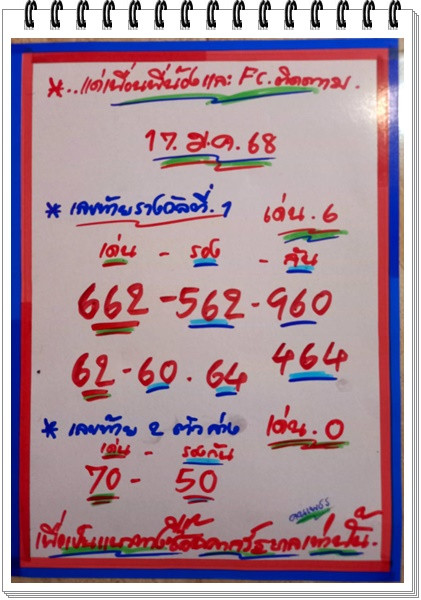 *..แด่เพื่อนพี่น้องและ FC.ติดตาม.
17. ม.ค. 68
* เลขท้ายรางวัลที่.1 เด่น.6
เด่น - รอง - กัน
662 - 562 - 960
62 - 60 . 64 464
* เลขท้าย 2 ตัวล่าง เด่น.0
เด่น - รองกัน
70 - 50
เพื่อเป็นแนวทางซื้อสลากรัฐบาลเท่านั้น.